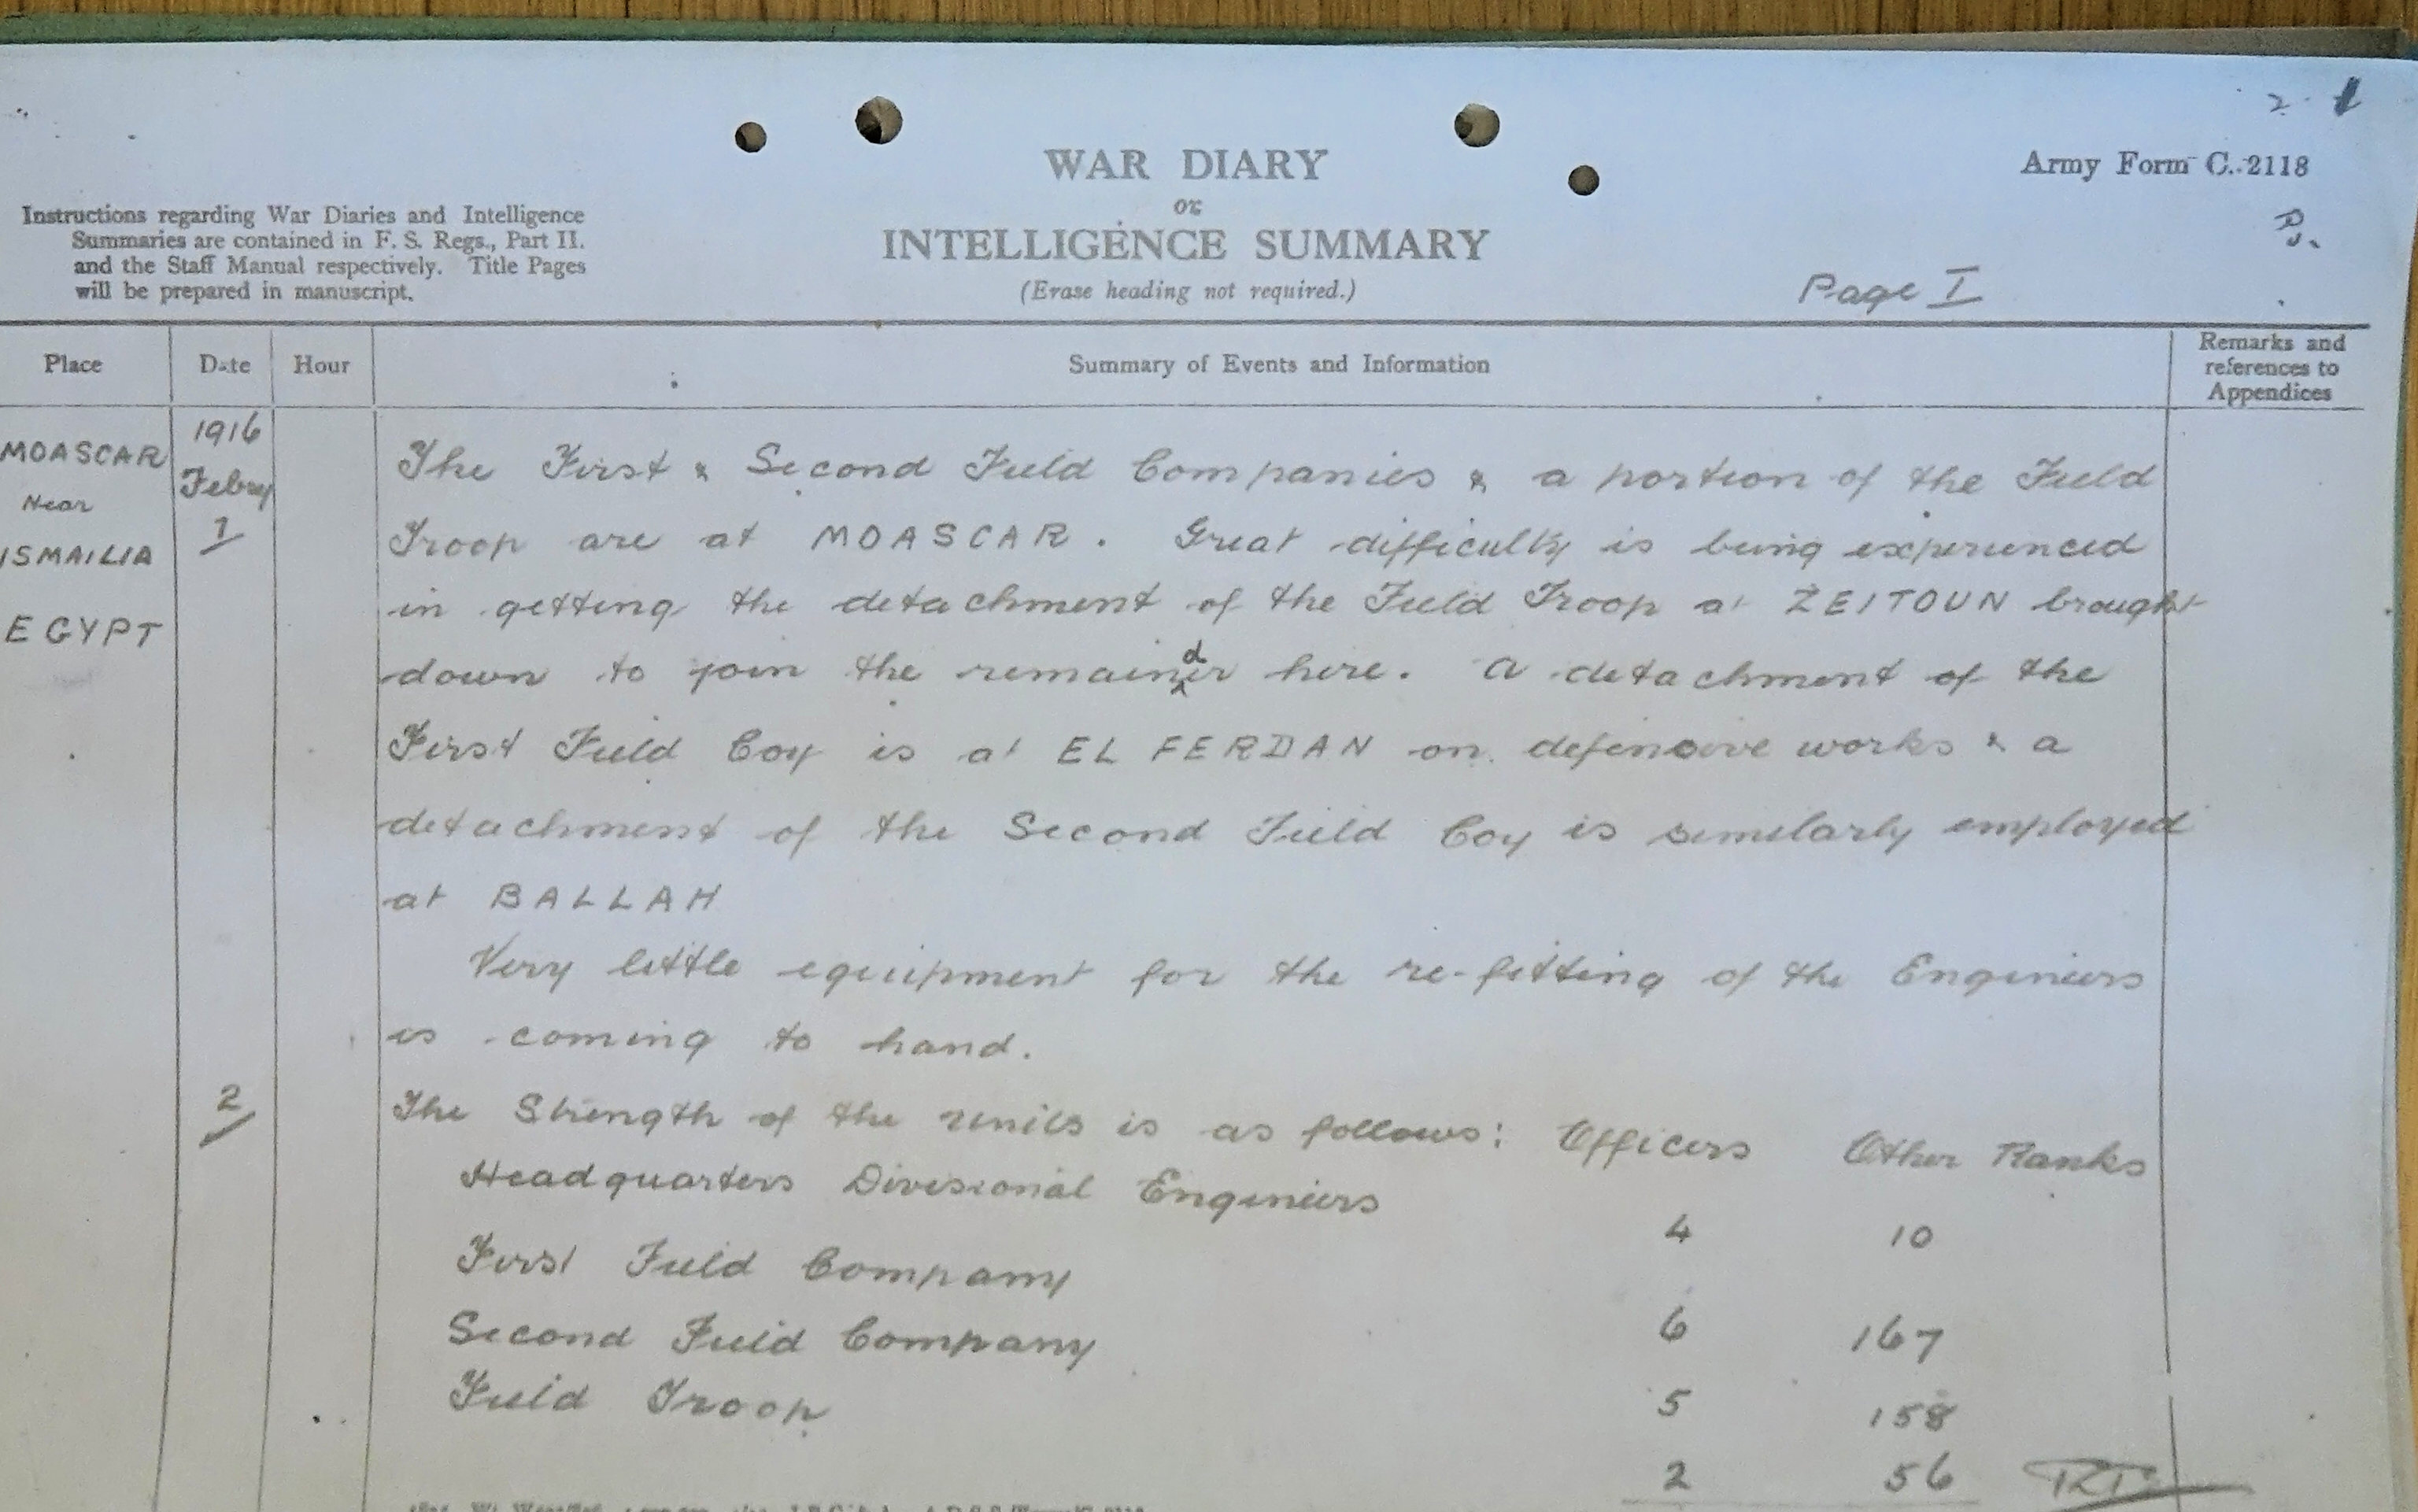 2. 1
WAR DIARY
or
INTELLIGENCE SUMMARY
(Erase heading not required.)
Army Form C. 2118
Instructions regarding War Diaries and Intelligence
Summaries are contained in F. S. Regs., Part II.
and the Staff Manual respectively. Title Pages
will be prepared in manuscript.
Page I
Place Date Hour Summary of Events and Information Remarks and references to Appendices
MOASCAR
Near
ISMAILIA
EGYPT
1916
Febry
1
The First & Second Field Companies & a portion of the Field
Troop are at MOASCAR. Great difficulty is being experienced
in getting the detachment of the Field Troop at ZEITOUN brought
down to join the remainder here. A detachment of the
First Field Coy is at EL FERDAN on defensive works & a
detachment of the Second Field Coy is similarly employed
at BALLAH
Very little equipment for the re-fitting of the Engineers
is coming to hand.
2
The Strength of the units is as follows: Officers Other Ranks
Headquarters Divisional Engineers 4 10
First Field Company 6 167
Second Field Company 5 158
Field Troop 2 56